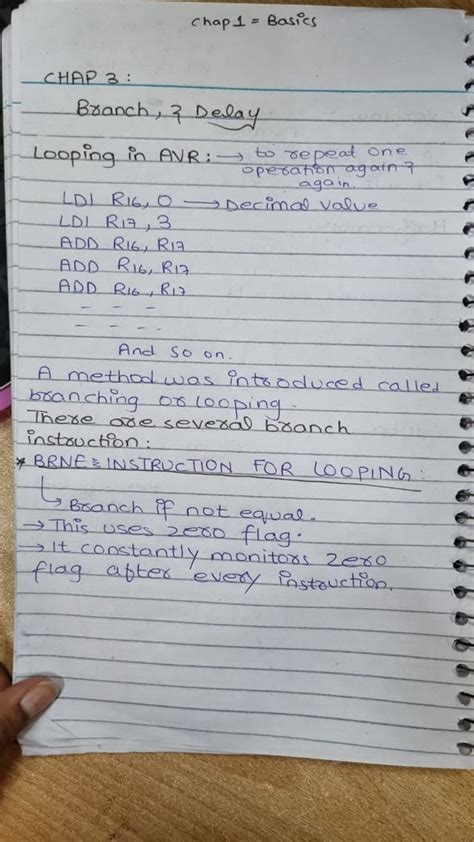 Chap 1 = Basics
CHAP 3 :
Branch, & Delay
Looping in AVR : → to repeat one
operation again &
again.
LDI R16, 0 → Decimal value
LDI R17, 3
ADD R16, R17
ADD R16, R17
ADD R16, R17
– – –
– – – –
And so on.
A method was introduced called
branching or looping.
There are several branch
instruction :
* BRNE : INSTRUCTION FOR LOOPING :
↳ Branch if not equal.
→ This uses zero flag.
→ It constantly monitors zero
flag after every instruction.